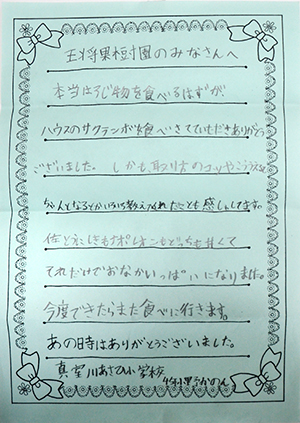 王将果樹園のみなさんへ
本当はろじ物を食べるはずが
ハウスのサクランボを食べさせていただきありがとう
ございました。しかも、取り方のコツや
いろいろ教えてくれたことも感しゃしてます。
佐とうにしきもナポレオンもどっちも甘くて
それだけでおなかいっぱいになりました。
今度できたらまた食べに行きます。
あの時はありがとうございました。
真室川あさひ小学校